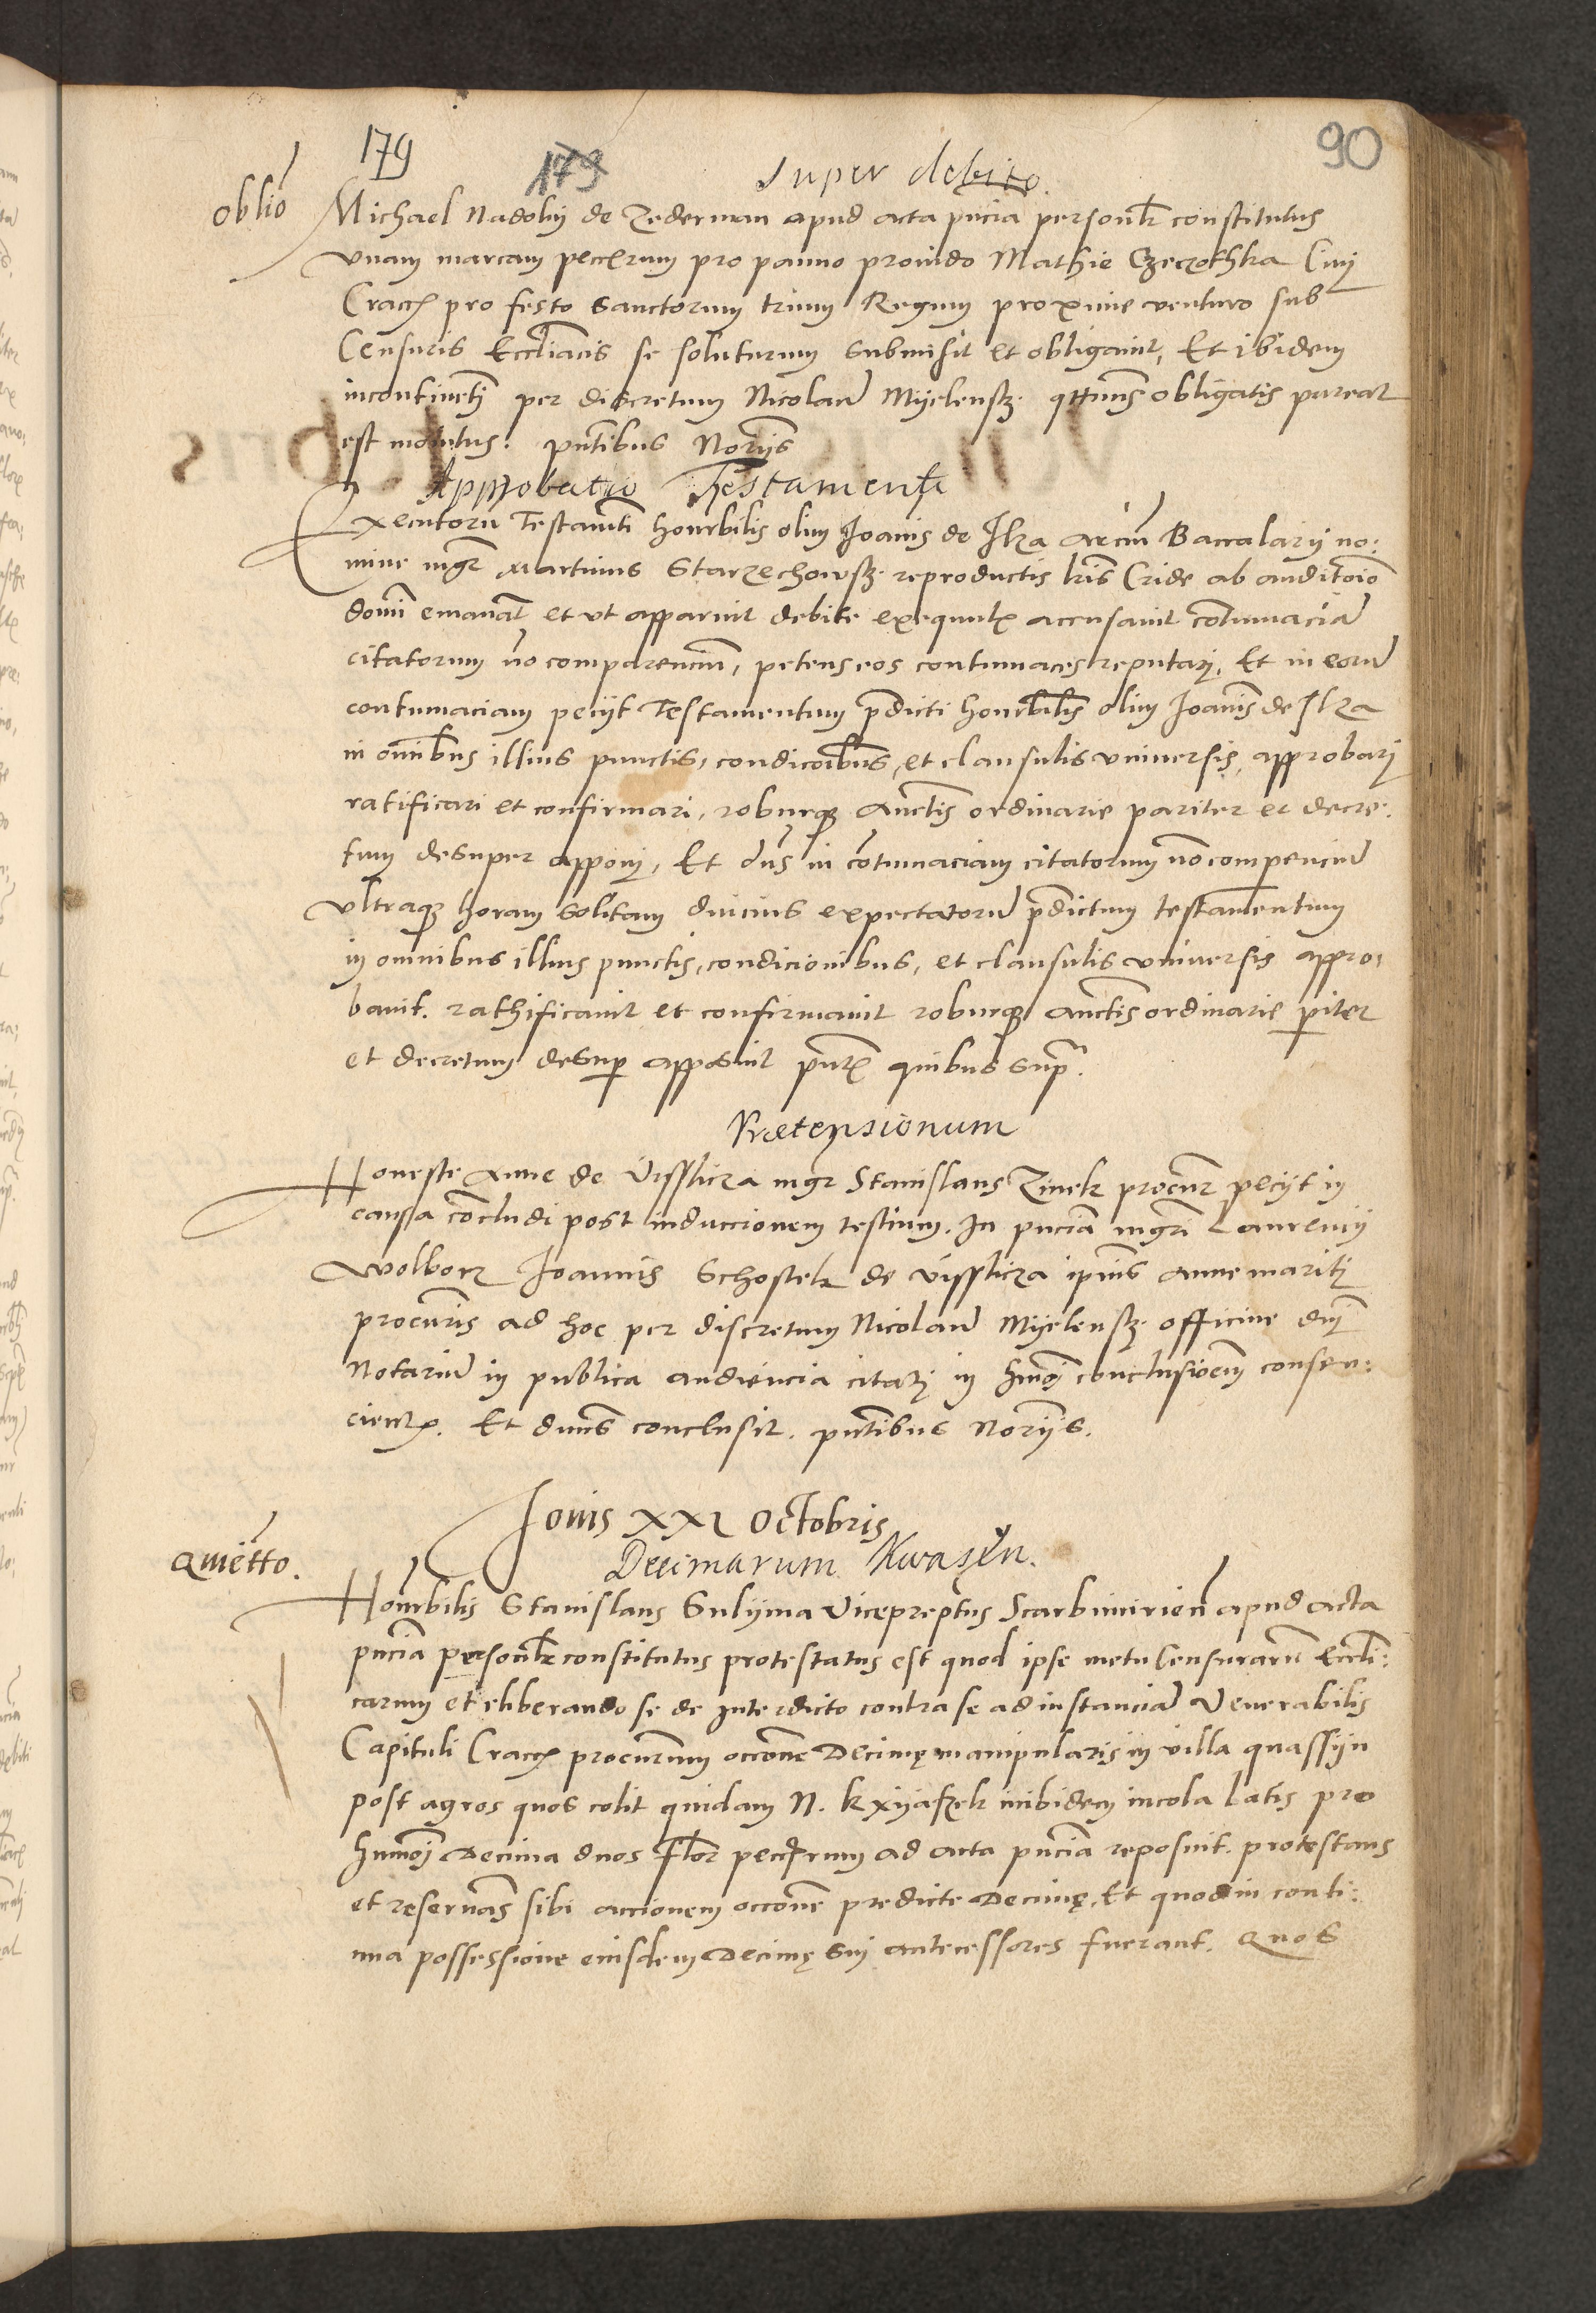 179
179
90
Super debito.
oblio
Michael Nadolny de Zederman apud acta pncia personlr constitutus
vnam marcam peccrum pro panno prouido Mathie Czeczothka Ciui
Cracc pro festo Sanctorum trium Regum proxime venturo sub
Censuris Ecclasticis se soluturum submisit et obligauit, Et ibidem
incontineti per discretum Nicolaum Myelensz. qttnus obligatis pareat
est monitus: pntibus Noriis
Approbatio Testamenti
Executoru Testamti honrbilis olim Joanis de Ilza arcium Baccalarij no:
mine mgr Martinus Starzechowsz. reproductis lris Cride ab auditoio
domi emanat et vt apparuit debite exequut accusauit cotumacia
citatorum no comparencium, petens eos contumaces reputari, Et in eorum
contumaciam peciyt Testamentum pdicti honrbilis olim Joanis de Ilza
in omibus illius punctis, condicoibus, et clausulis vniuersis, approbari
ratificari et confirmari, roburqz auctis ordinarie pariter et decre:
tum desuper apponi, Et dns in cotumaciam citatorum no comperenciu
vltraqz horam solitam diucius expectatoru pdictum testamentum
in omnibus illius punctis, condicionibus, et clausulis vniuersis appro:
bauit. rathificauit et confirmauit roburqz auctis ordinarie piter
et decretum desup apposuit pntr quibus supra.
Prætensionum
Honeste Anne de Visslicza mgr Stanislaus Zinek procur peciyt in
causa cocludi post induccionem testium. In pncia mgri Laurencij
Wolborz Joannis Schostek de Visslicza ipius anne mariti
procuris ad hoc per discretum Nicolaum Myelensz. officine dni
Notarium in publica audiencia citati in hmoi conclusioem consen:
cient. Et dnus conclusit. pntibus Noriis.
Jouis XXI Octobris
Decimarum Kwaszÿn.
Quietto.
Honrbilis Stanislaus Sulijma Vicepreptus Scarbimirien apud acta
pncia personlr constitutus protestatus est quod ipse metu Censuraru Eccli:
carum et eliberando se de interdicto contra se ad instancia Venerabilis
Capituli Cracc procurum occone Decimę manipularis in villa quassijn
post agros quos colit quidam N. kxijaszek inibidem incola latis pro
hmoi decima duos Flor peccrum ad acta pncia reposuit. protestans
et reseruas sibi accionem occone predicte Decimę, Et quod in conti:
nua possessione eiusdem Decimę sui antecessores fuerant. Quos